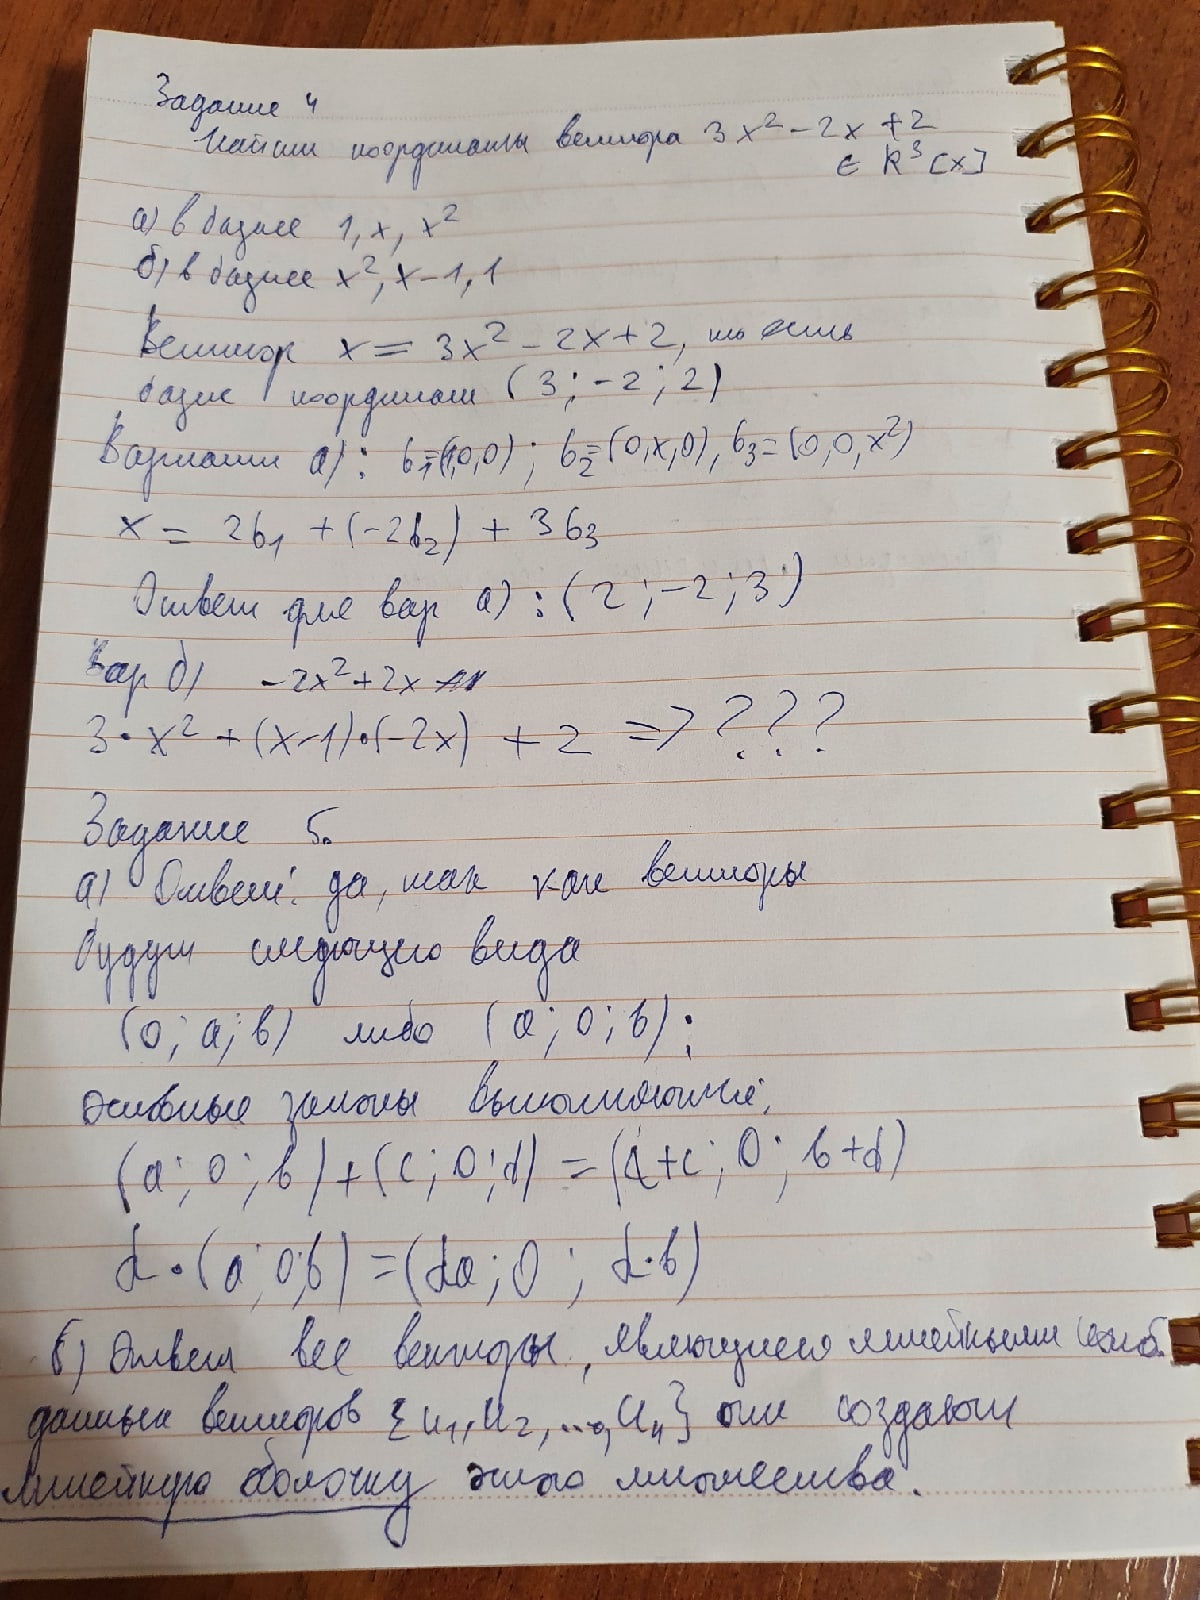 Задание 4
Найти координаты вектора 3x² - 2x + 2
∈ R³[x]
а) в базисе 1, x, x²
б) в базисе x², x-1, 1
Вектор x = 3x² - 2x + 2, то есть
базис координат (3; -2; 2)
Вариант а): b₁=(1,0,0); b₂=(0,x,0), b₃=(0,0,x²)
x = 2b₁ + (-2b₂) + 3b₃
Ответ для вар а): (2; -2; 3)
Вар б) -2x²+2x
3·x² + (x-1)·(-2x) + 2 => ???
Задание 5.
а) Ответ: да, так как векторы
будут следующего вида
(0; a; b) либо (a; 0; b):
основные законы выполняются:
(a; 0; b) + (c; 0; d) = (a+c; 0; b+d)
α·(a; 0; b) = (αa; 0; α·b)
б) Ответ все векторы, являющиеся линейными комб.
данных векторов {u₁, u₂, ..., uₙ} они создают
линейную оболочку этого множества.